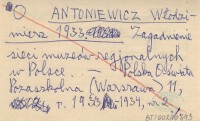 O ANTONIEWICZ Włodzi-
mierz 1933
Zagadnienie
sieci muzeów regjonalnych
w Polsce. — Polska Oświata
Pozaszkolna (Warszawa) 11,
r. 1933-1934, nr 2,